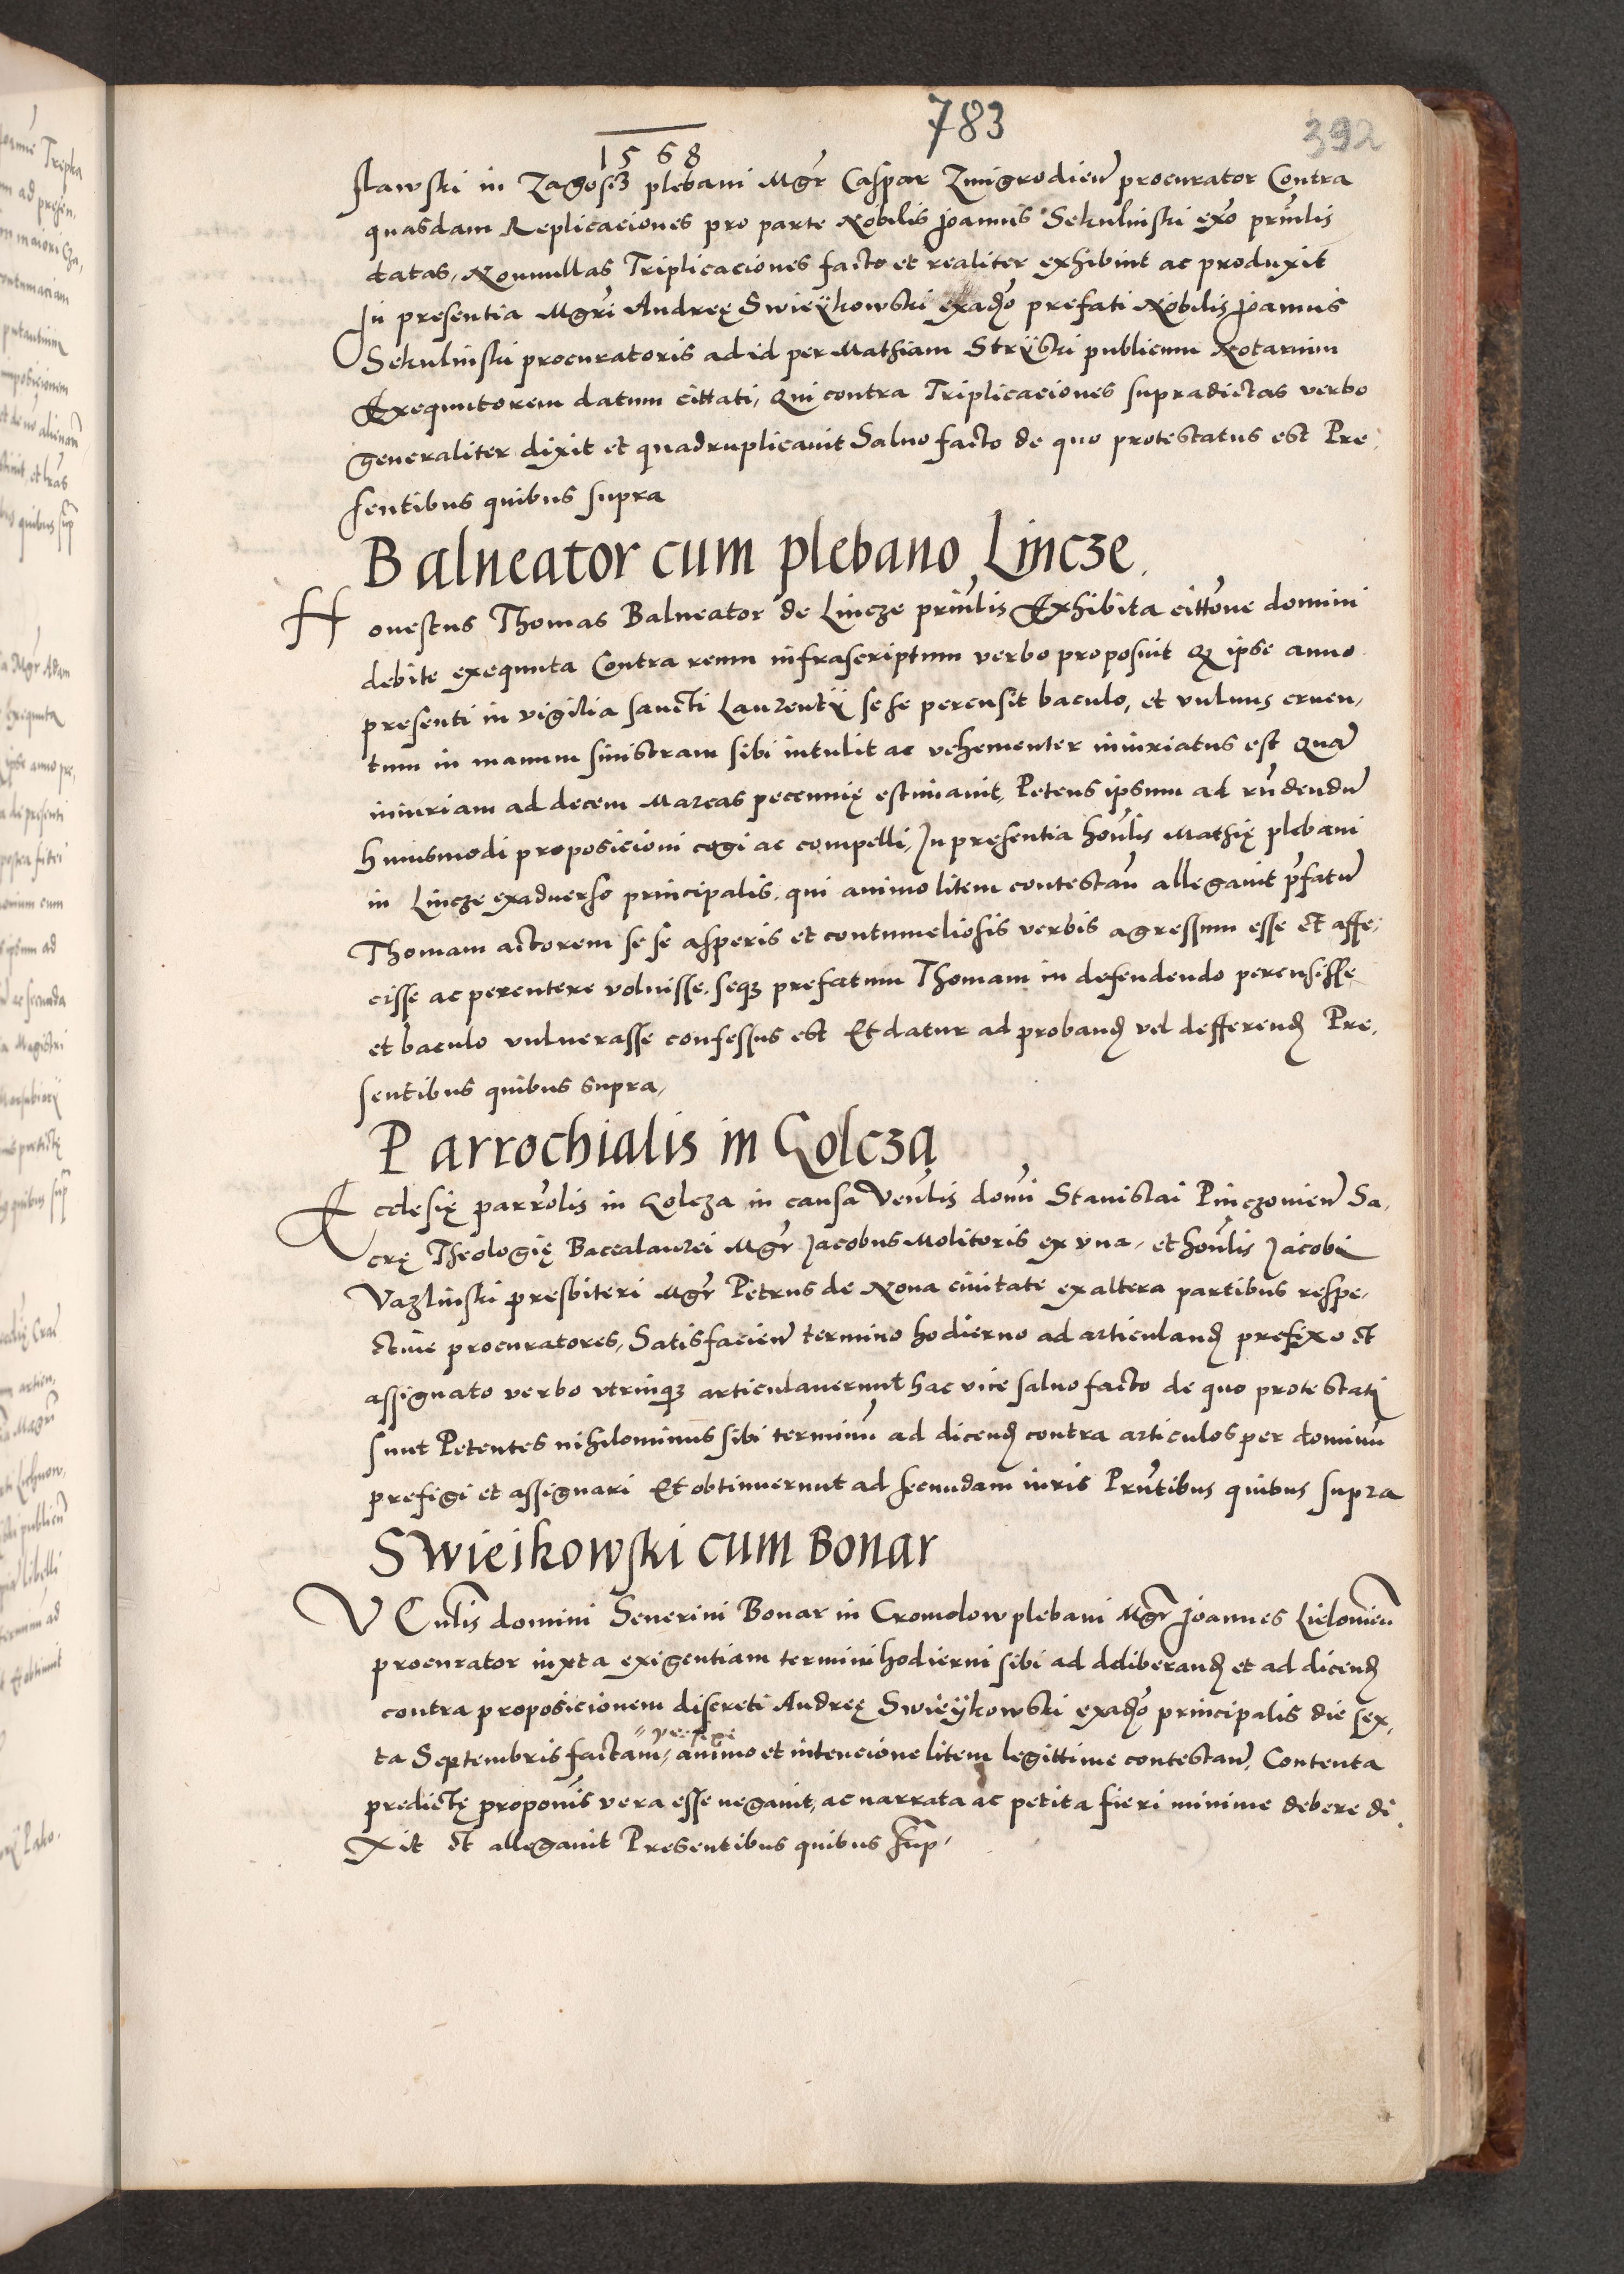 783
392
1568
slawski in Zagoscz plebani Mgr̃ Caspar Zmigrodień procurator Contra
quasdam Replicaciones pro parte Nobilis Joannis Sekulinski exõ prin̄lis
datas, Nonnullas Triplicaciones facto et realiter exhibuit ac produxit
In presentia Mgr̃i Andreę Swieÿkowski exadṽo prefati Nobilis Joannis
Sekulinski procuratoris ad id per Mathiam Strÿski publicum Notarium
Exequutorem datum cittati, Qui contra Triplicaciones supradictas verbo
generaliter dixit et quadruplicauit Saluo facto de quo protestatus est Pre,
sentibus quibus supra
Balneator cum plebano Lincze.
Honestus Thomas Balneator de Lincze prin̄lis Exhibita cittõne domini
debite exequuta Contra reum infrascriptum verbo proposuit Qꝫ ipse anno
presenti in vigilia sancti Laurentÿ sese percusit baculo, et vulnus cruen,
tum in manum sinistram sibi intulit ac vehementer iniuriatus est Quā
iniuriam ad decem Marcas pecunnię estimauit, Petens ipsum ad rñdendū
huiusmodi proposicioni cogi ac compelli, In presentia honl̃is Mathię plebani
in Lincze exaduerso principalis. qui animo litem contestań allegauit p̃fatū
Thomam actorem se se asperis et contumeliosis verbis agressum esse et affe,
cisse ac percutere voluisse. seqꝫ prefatum Thomam in defendendo percusisse
et baculo vulnerasse confessus est Et datur ad proband̃ vel defferend̃ Pre,
sentibus quibus supra,
Parrochialis in Golcza
Ecclesię parrõlis in Golcza in causa Venl̃is doñi Stanislai Pinczouień Sa,
crę Theologię Baccalaurei Mgr̃ Jacobus Molitoris ex vna, et honl̃is Jacobi
Vazlinski presbiteri Mgr̃ Petrus de Noua ciuitate ex altera partibus respe,
ctiue procuratores, Satisfacień termino hodierno ad articuland̃ prefixo et
assignato verbo vtrinqꝫ articulauerunt hac vice saluo facto de quo protestati
sunt Petentes nihilominus sibi terminū ad dicend̃ contra articulos per dominū
prefigi et assignari Et obtinuerunt ad secundam iuris Prñtibus quibus supra
Swieikowski cum Bonar
VEnl̃is domini Seuerini Bonar in Cromolow plebani Mgr̃ Joannes Lielouień
procurator iuxta exigentiam termini hodierni sibi ad deliberand̃ et ad dicend̃
contra proposicionem discreti Andreę Swieÿkowski exadṽo principalis die sex,
ta Septembris factam, animo et intencione litem legittime contestań, Contenta
predictę proponĩs vera esse negauit, ac narrata ac petita fieri minime debere di,
xit et allegauit Presentibus quibus sup̃,